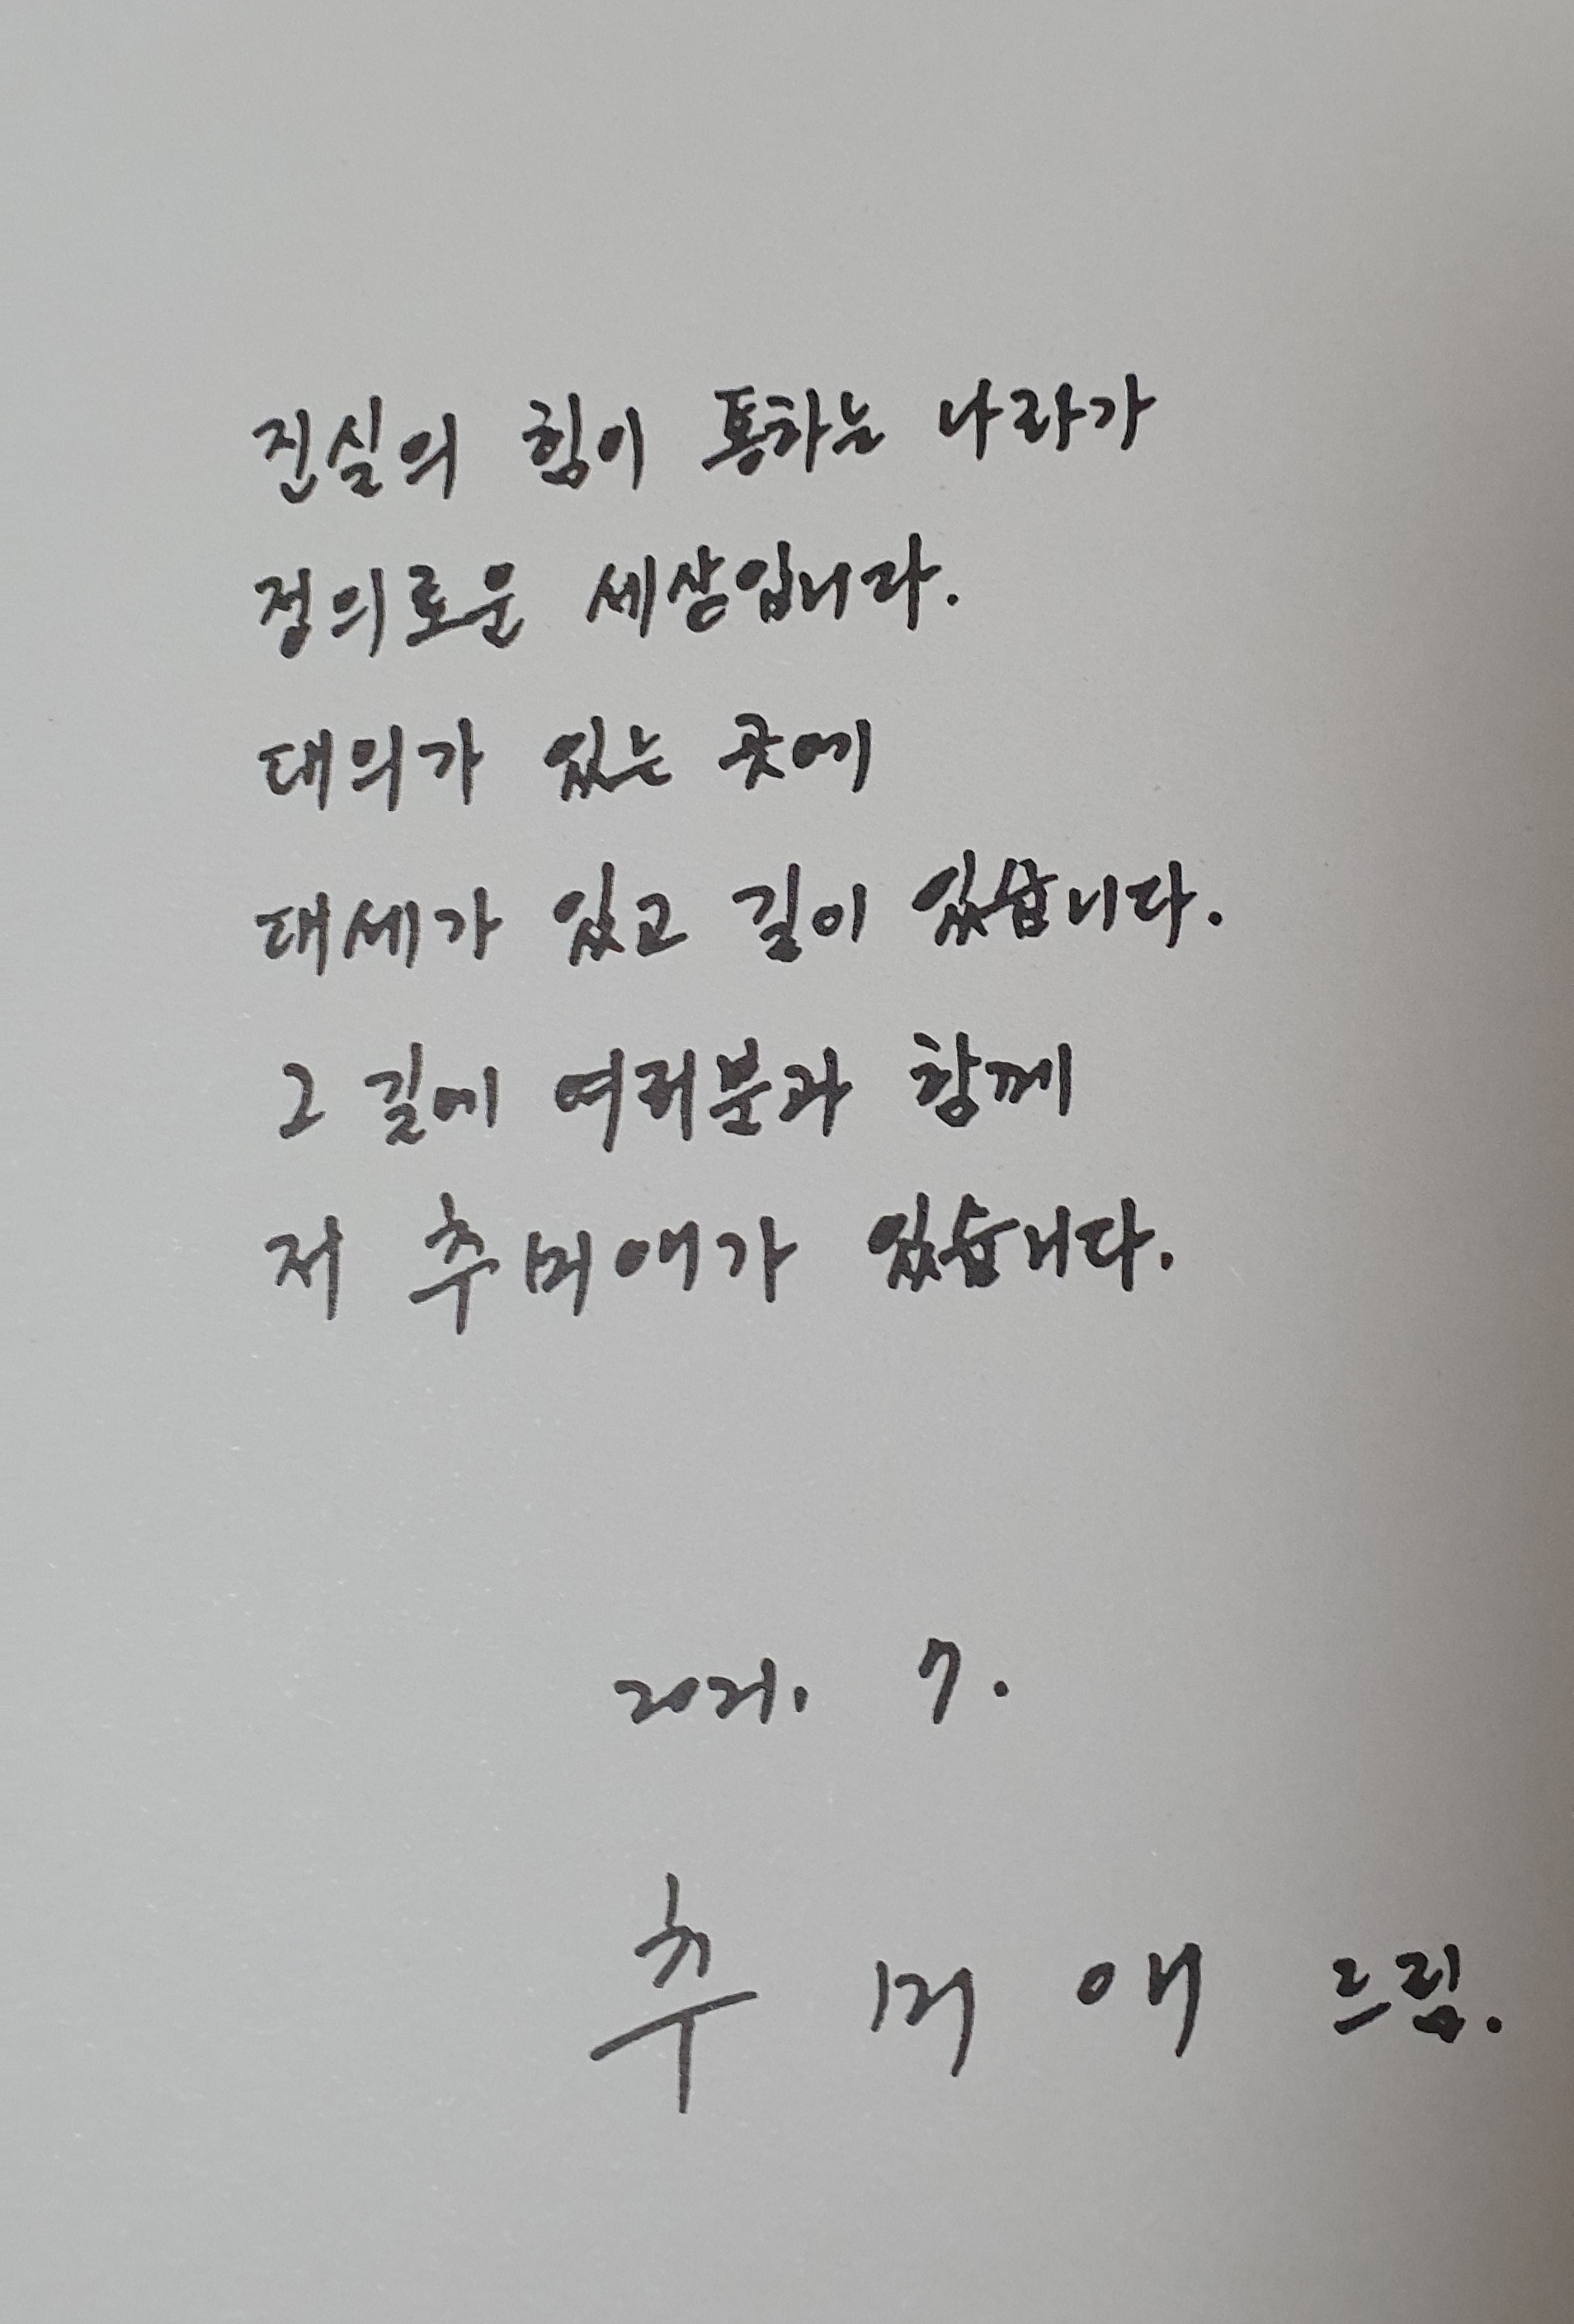 진실의 힘이 통하는 나라가
정의로운 세상입니다.
대의가 있는 곳에
대세가 있고 길이 있습니다.
그 길에 여러분과 함께
저 추미애가 있습니다.
2021. 7.
추 미 애 드림.